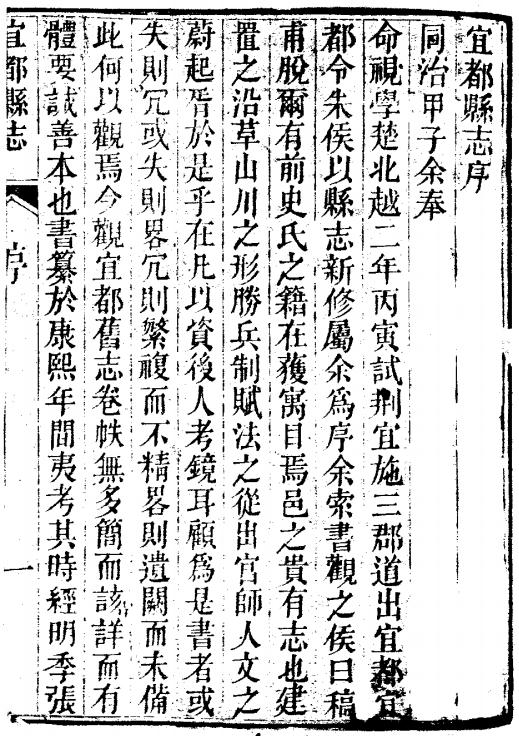 宜都縣志序
同治甲子余奉
命視學楚北越二年丙寅試荆宜施三郡道出宜都宜
都令朱侯以縣志新修屬余爲序余索書觀之侯曰稿
甫脫爾有前史氏之籍在獲寓目焉邑之貴有志也建
置之沿革山川之形勝兵制賦法之從出官師人文之
蔚起胥於是乎在凡以資後人考鏡耳顧爲是書者或
失則冗或失則畧冗則繁複而不精畧則遺闕而未備
此何以觀焉今觀宜都舊志卷帙無多簡而該詳而有
體要誠善本也書纂於康熙年間夷考其時經明季張
宜都縣志
序
一